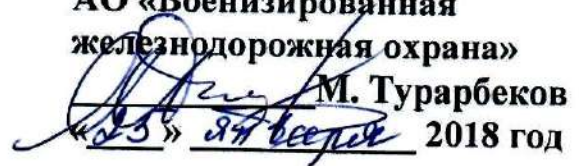 АО «Военизированная
железнодорожная охрана»
М. Турарбеков
«23» января 2018 год